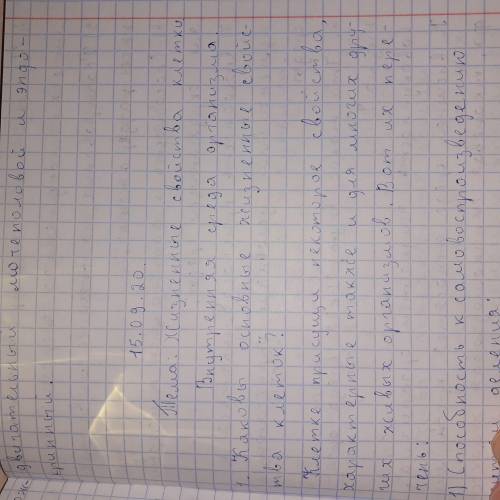 двигательный мочеполовой и эндо-
кринный.
15.09.20.
Тема: Жизненные свойства клетки
Внутренняя среда организма.
1. Каковы основные жизненные свойс-
тва клеток?
Клетке присущи некоторое свойства,
характерные также и для многих дру-
гих живых организмов. Вот их пере-
чень:
1) Способность к самовоспроизведению
деления: